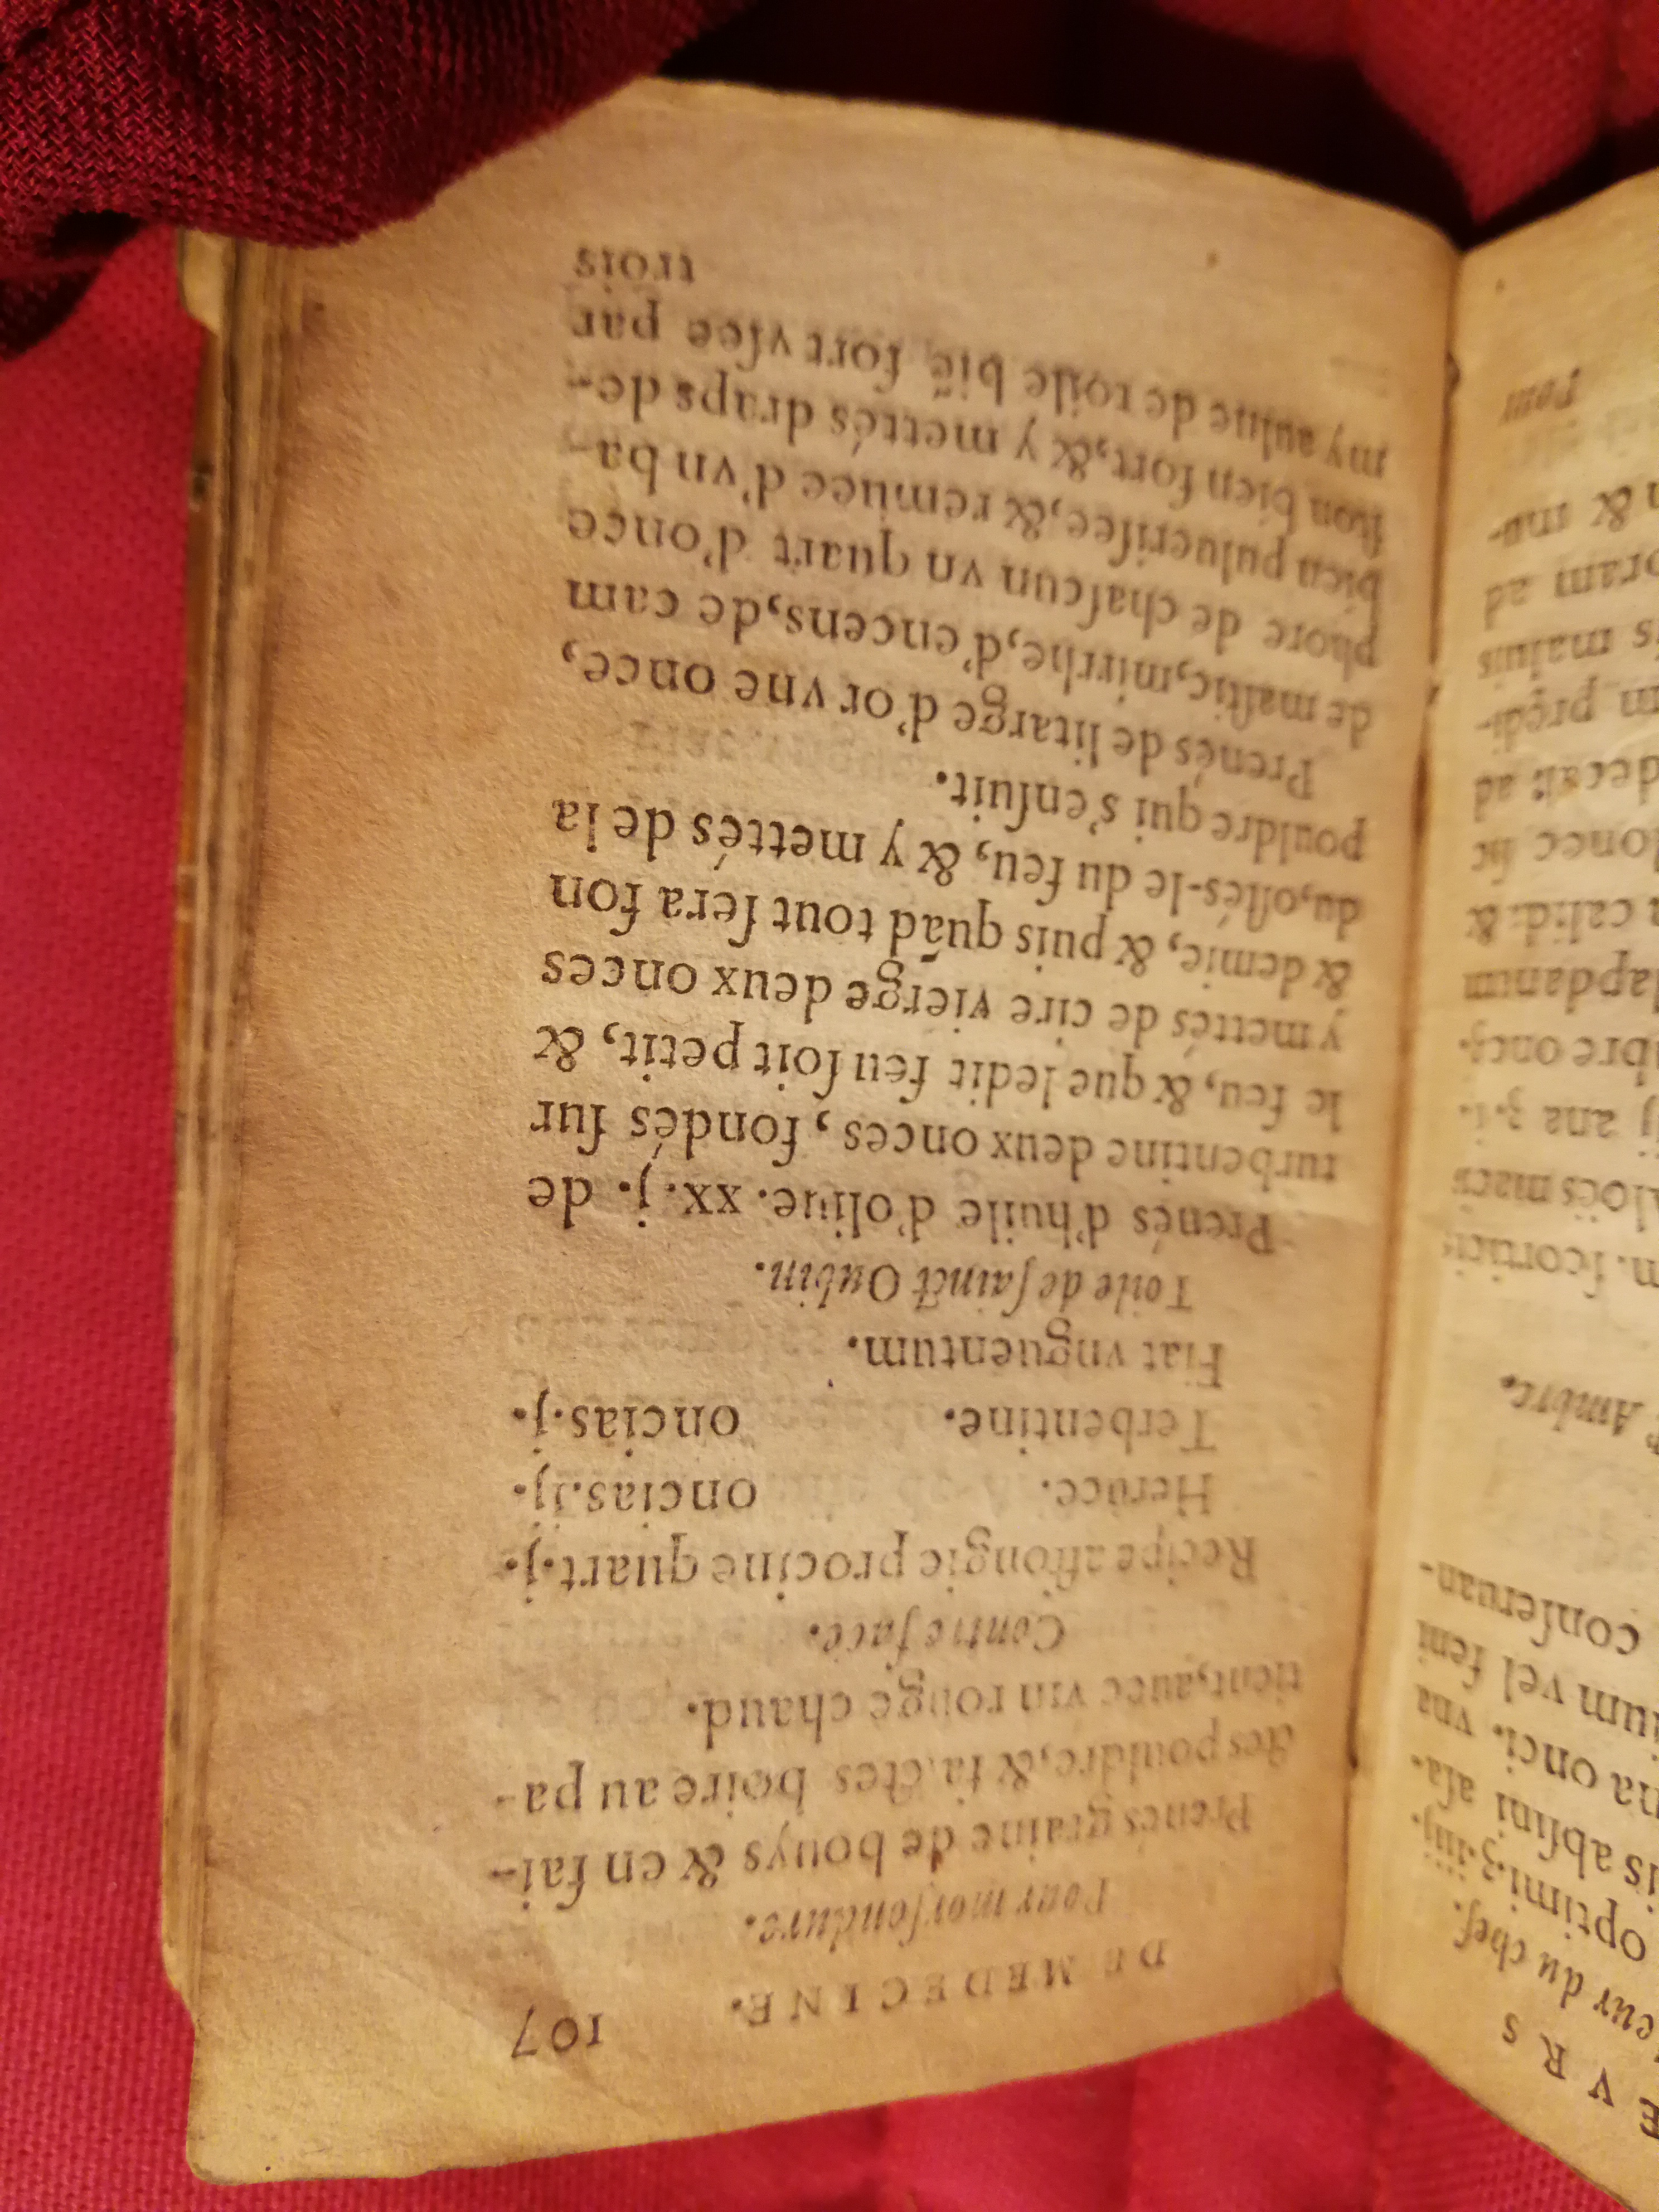 E V R S
eur du chef.
optimi.ʒ.iiij.
is absini asa-
na onci. vna
ium vel semi
conseruan-
Ambre.
m. scorticis
Aloës macis
ij ana ʒ.i.
bre oncj.
lapdanum
calid: &
donec sic
ad
m prędi-
s maluis
oram ad
& mu-
Pour
DE MEDECINE. 107
Pour morfondure.
Prenés graine de bouys & en fai-
ctes pouldre, & faictes boire au pa-
tient, auec vin rouge chaud.
Contre face.
Recipe aſſongie procine quart.j.
Heruce. oncias.ij.
Terbentine. oncias.j.
Fiat vnguentum.
Toile de ſainct Oubin.
Prenés d'huile d'oliue. xx. j. de
turbentine deux onces, fondés ſur
le feu, & que ledit feu ſoit petit, &
y mettés de cire vierge deux onces
& demie, & puis quād tout ſera fon
du, oſtés-le du feu, & y mettés de la
pouldre qui s'enſuit.
Prenés de litarge d'or vne once,
de maſtic, mirrhe, d'encens, de cam
phore de chaſcun vn quart d'once
bien pulueriſee, & remuee d'vn ba-
ſton bien fort, & y mettés draps de-
my aulne de toile biē fort vſee par
trois